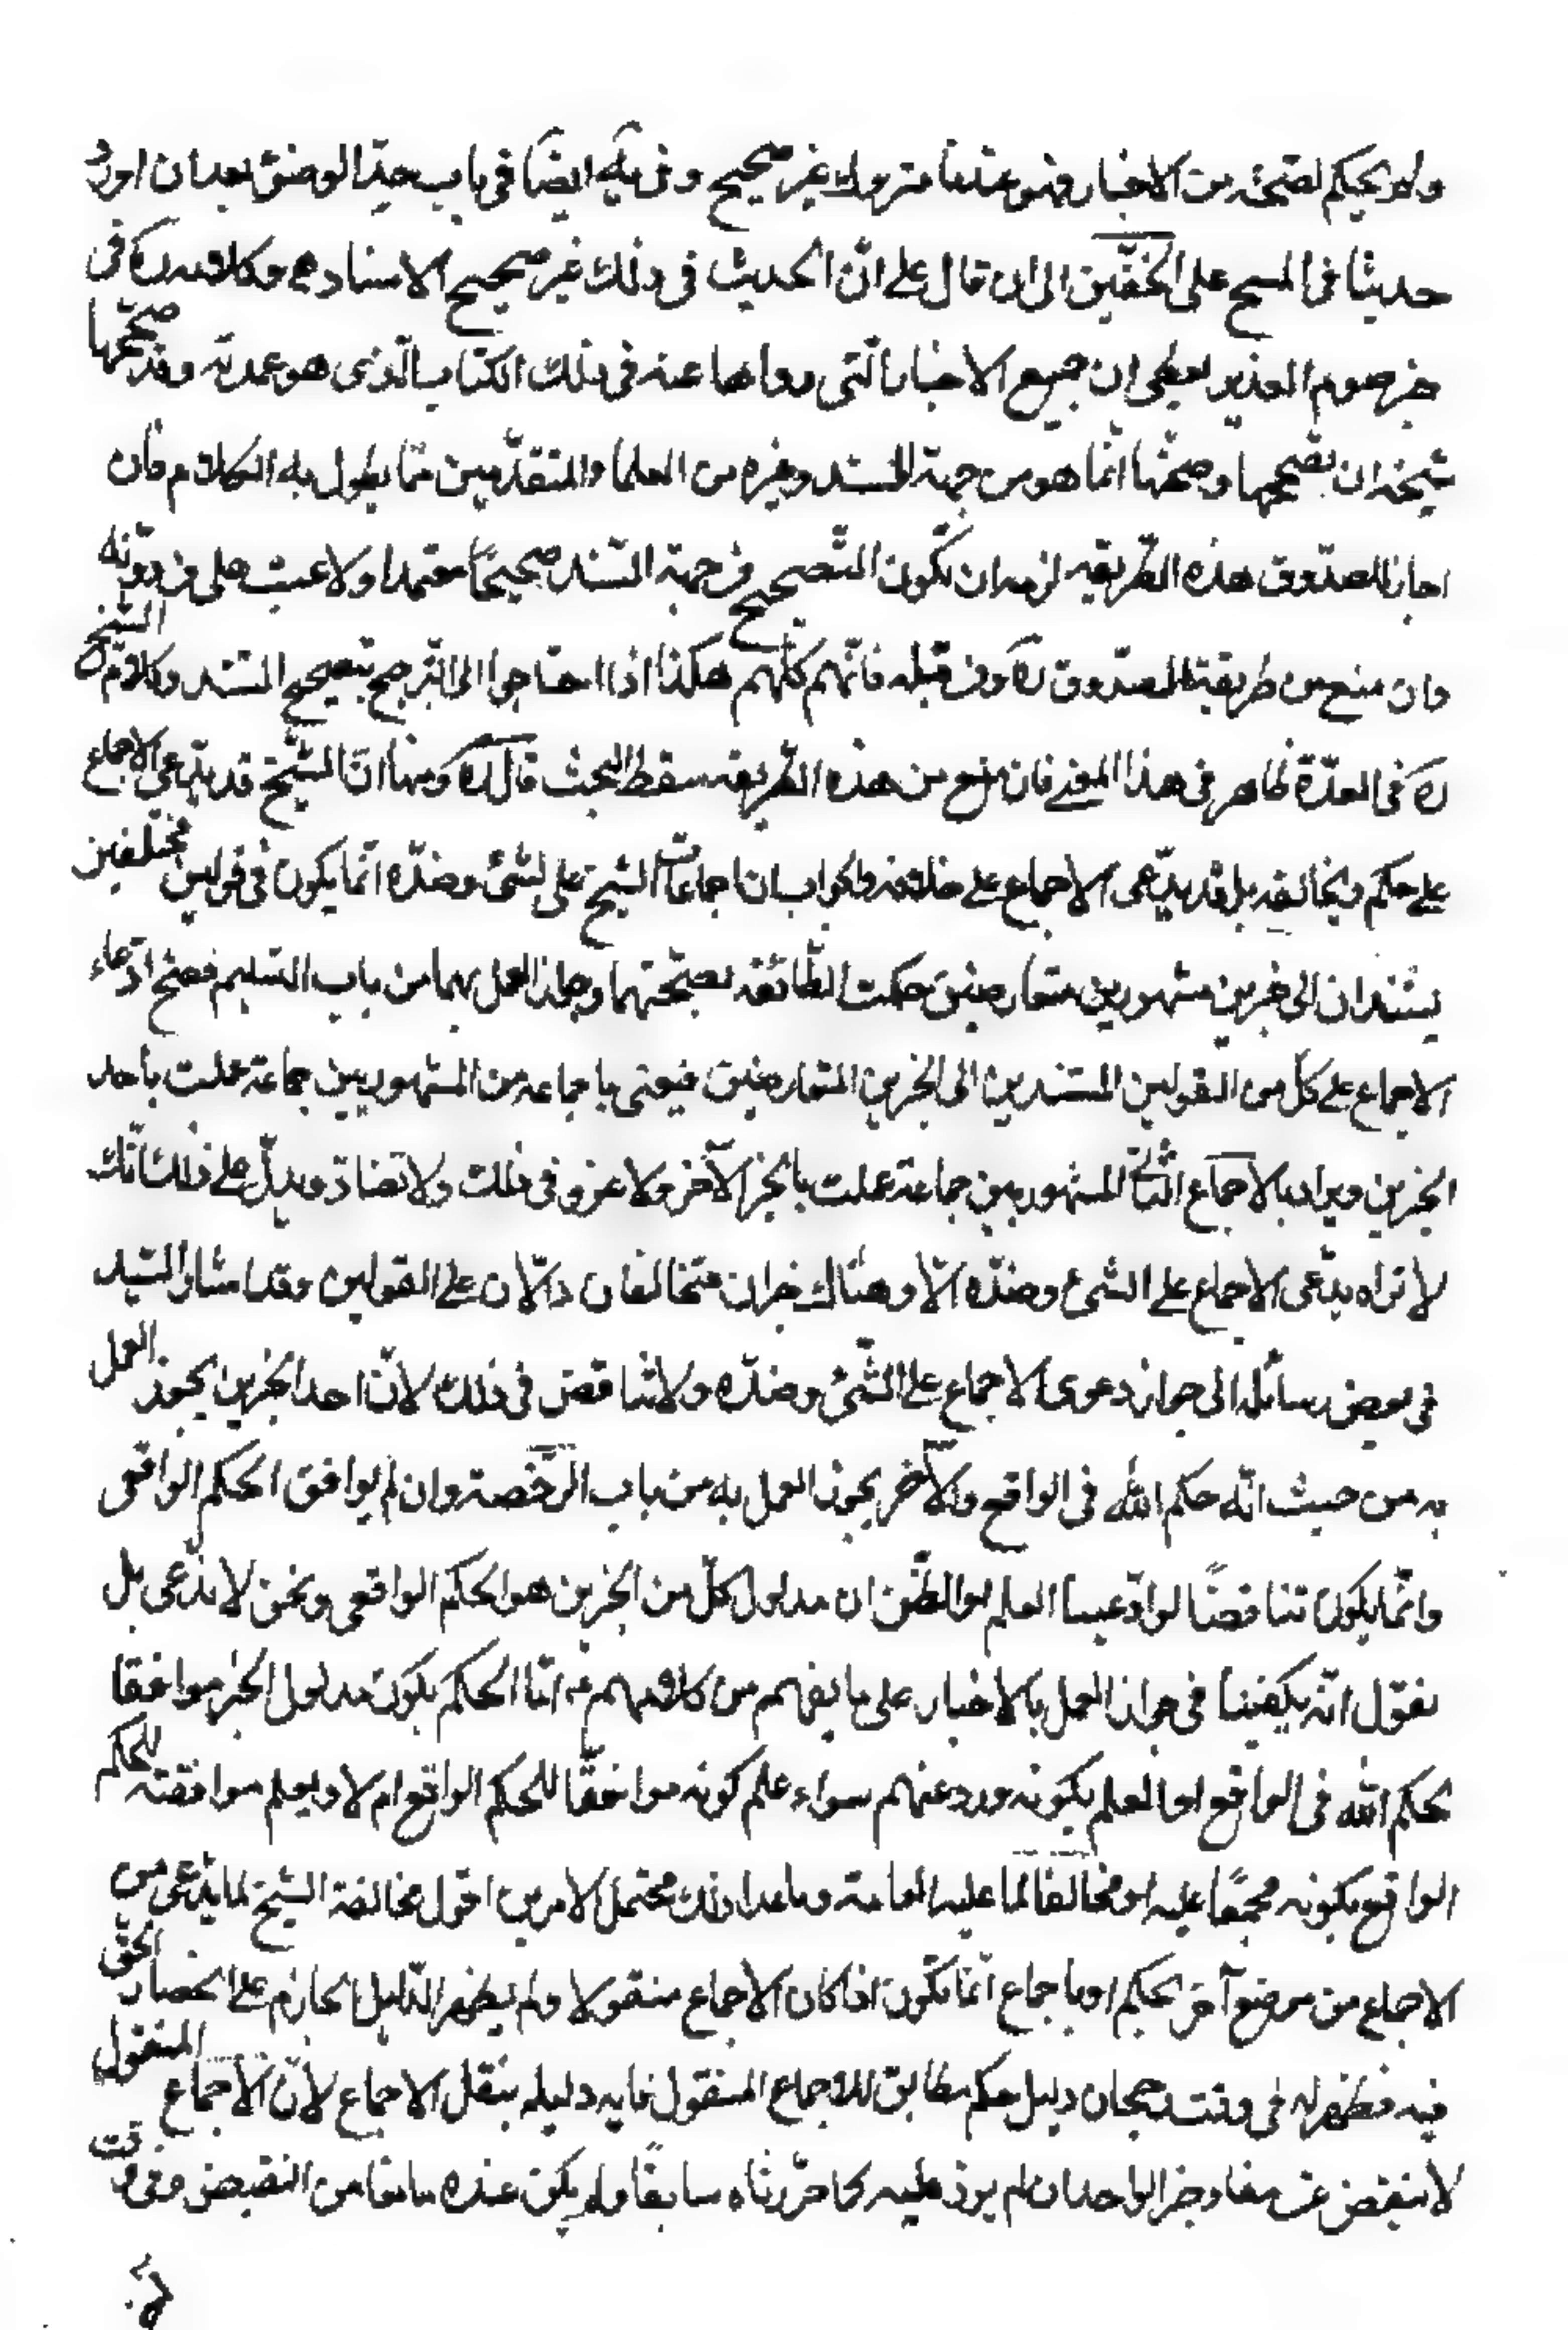 ولم يحكم بصحّته من الاخبار فهو عندنا متروك غير صحيح وفى يه ايضًا فى باب حدّ الوضوء بعد ان اورد
حديثا فى المسح على الخفّين الى ان قال على انّ الحديث فى ذلك غير صحيح الاسناد وكلامه ره فى
خبر صوم الغدير يعطى ان جميع الاخبار الّتى رواها عنه فى ذلك الكتاب الّذى هو عمدته وقد صحّحها
شيخه ان تصحيحها وصحّتها انّما هو من جهة السند وغيره من العلماء والمتقدّمين ممّا يطول به الكلام فان
اجاز الصدّوق هذه الطّريقه لزمه ان تكون التّصحيح من جهة السّند صحيحًا معتمدا ولا عيب على من دونه
وان منع من طريقة الصدّوق ره ومن قبله فانّهم كلّهم هكذا اذا احتاجوا الى التّرجيح بتصحيح السّند وكلام الشّيخ
ره فى العدّة ظاهر فى هذا المعنى فان منع من هذه الطّريقه سقط البحث قال ره ومنها انّ الشّيخ قد يدّعى الاجماع
على حكم ويخالفه بل قد يدّعى الاجماع على خلافه والجواب ان اجماعات الشيخ على الشئ وضدّه انّما يكون فى قولين مختلفين
يستندان الى خبرين مشهورين متعارضين حكمت الطّائفه بصحّتهما وجواز العمل بهما من باب التسليم فصحّ ادّعاء
الاجماع على كلّ من القولين المستندين الى الخبرين المتعارضين فيعنى باجماعه من المشهوريين جماعة عملت باحد
الخبرين ويراد بالاجماع الثّانى المشهوريين جماعة عملت بالخبر الآخر ولا غرو فى ذلك ولا تضادّ ويدلّ على ذلك انّك
لا تراه يدّعى الاجماع على الشئ وضدّه الّا وهناك خبران متخالفان دالّان على القولين وقد اشار السّيد
فى بعض رسائله الى جواز دعوى الاجماع على الشّئ وضدّه ولا تناقض فى ذلك لانّ احد الخبرين يجوز العمل
به من حيث انّه حكم الله فى الواقع والآخر يجوز العمل به من باب الرّخصة وان لم يوافق الحكم الواقعى
وانّما يكون تناقضًا لو ادّعينا العلم او الظّن ان مدلول كلّ من الخبرين هو الحكم الواقعى ونحن لا ندّعى بل
نقول انّه يكفينا فى جواز العمل بالاخبار على ما يفهم من كلامهم امّا الحكم بكون مدلول الخبر موافقا
لحكم الله فى الواقع او العلم بكونه ورد عنهم سواء علم كونه موافقًا للحكم الواقع ام لا ويعلم موافقته للحكم
الواقع بكونه مجمعًا عليه او مخالفا لما عليه العامة وما عدا ذلك محتمل الامرين اقول مخالفة الشيخ لما يدّعى من
الاجماع من موضع آخر بحكم او باجماع انّما تكون اذا كان الاجماع منقولا ولم يظهر الدّليل الجازم على انحصار الحقّ
فيه فظهر له فى وقت رجحان دليل حكم مطابق للاجماع المنقول فايد دليله بنقل الاجماع لانّ الاجماع المنقول
لا ينقص عن مفاد خبر الواحد ان لم يزد عليه كما حرّرناه سابقًا ولم يكن عنده مانعا من النقيض وفى وقت